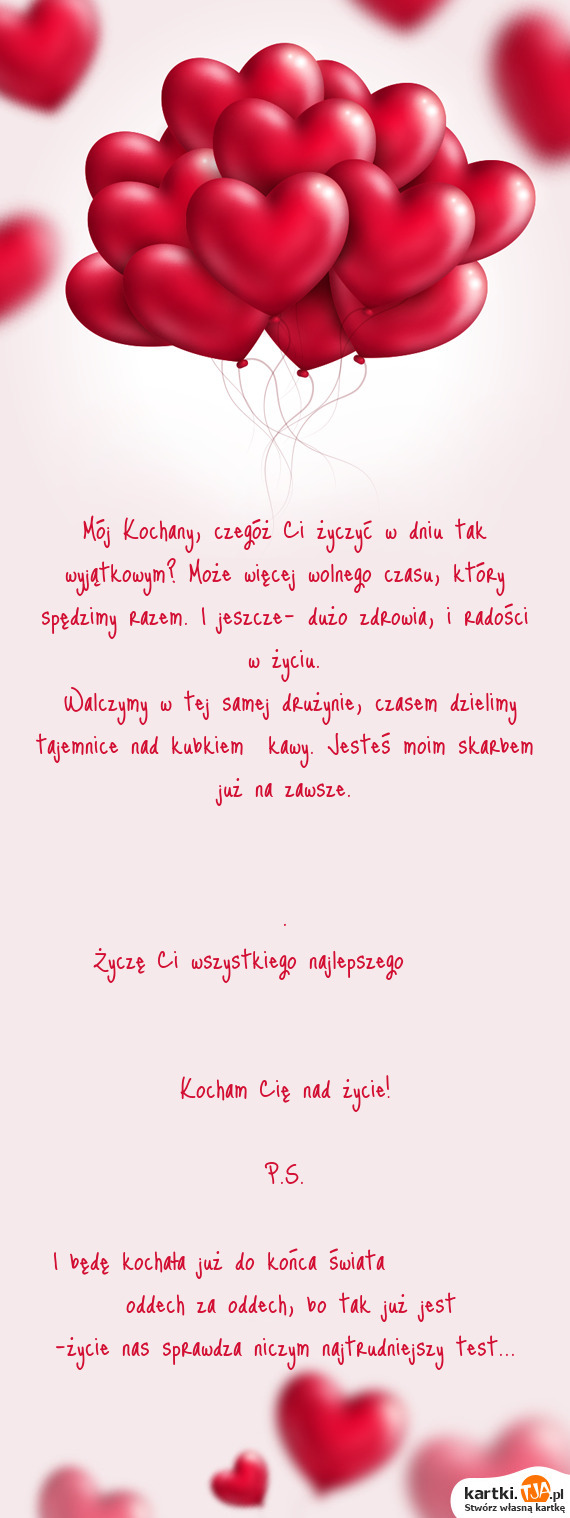 Mój Kochany, czegóż Ci życzyć w dniu tak
wyjątkowym? Może więcej wolnego czasu, który
spędzimy razem. I jeszcze- dużo zdrowia, i radości
w życiu.
Walczymy w tej samej drużynie, czasem dzielimy
tajemnice nad kubkiem kawy. Jesteś moim skarbem
już na zawsze.
.
Życzę Ci wszystkiego najlepszego
Kocham Cię nad życie!
P.S.
I będę kochała już do końca świata
oddech za oddech, bo tak już jest
-życie nas sprawdza niczym najtrudniejszy test...
kartki.TJA.pl
Stwórz własną kartkę